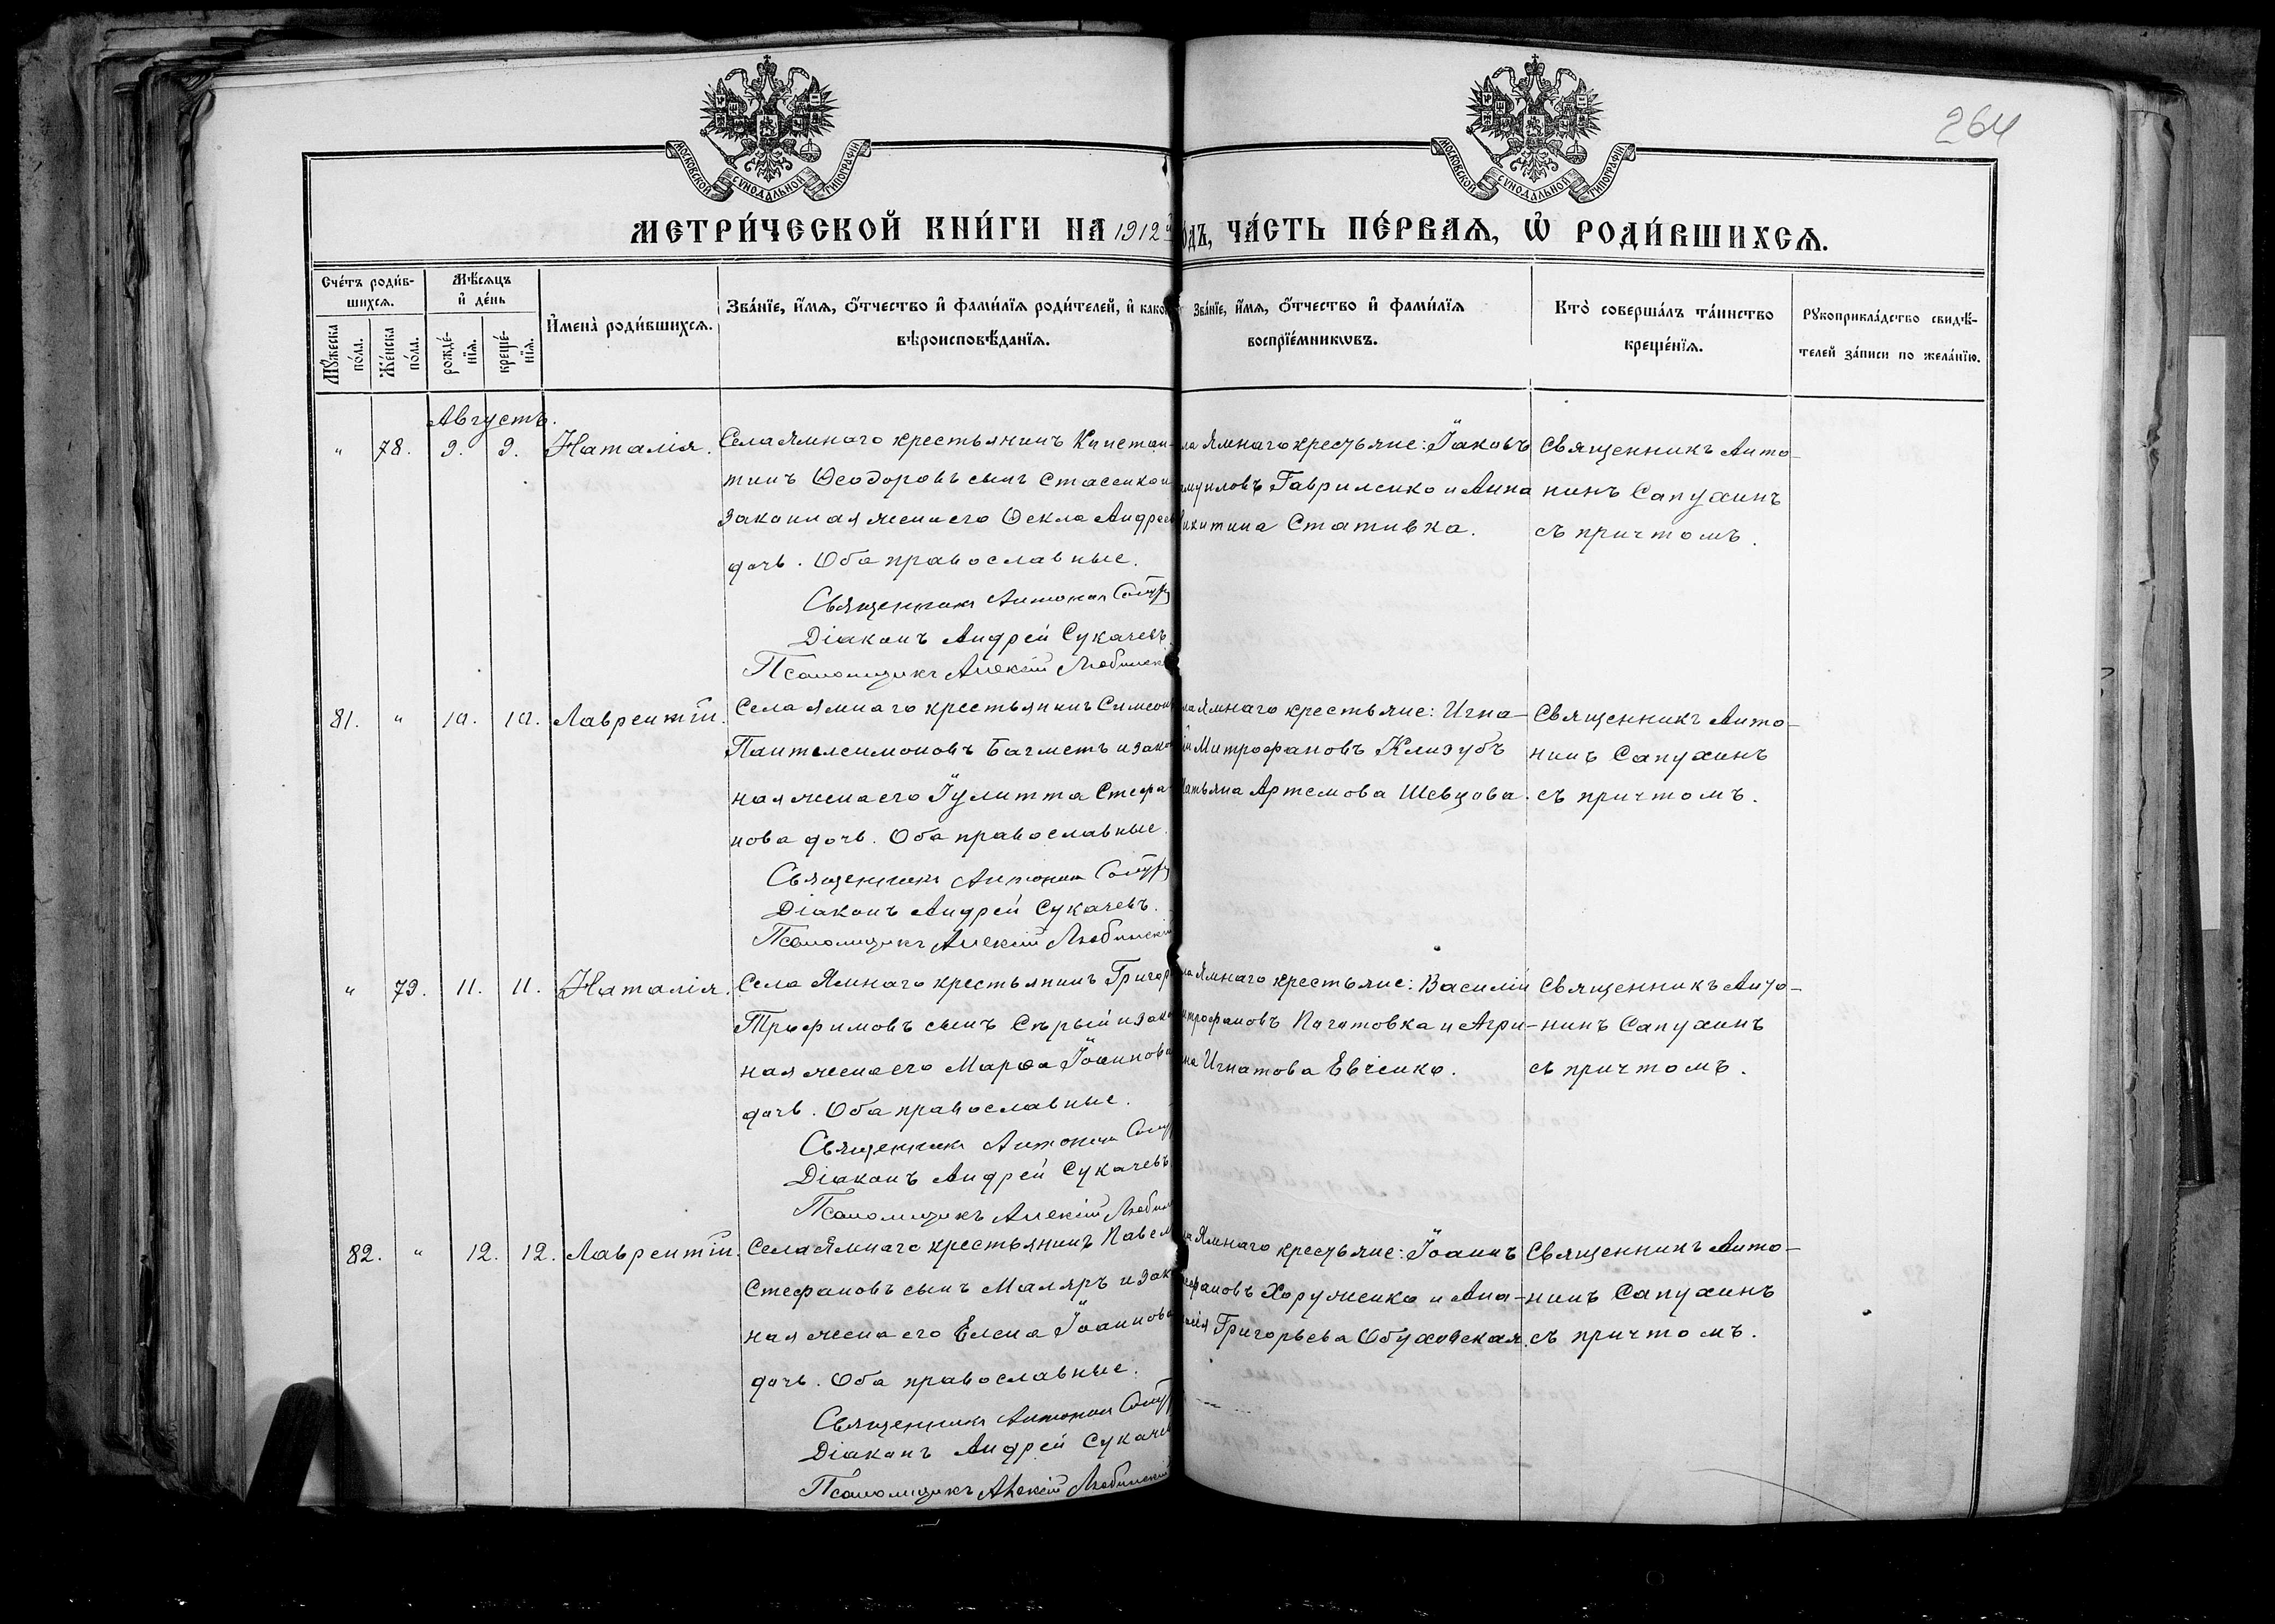 264
МОСКОВСКОЙ СѴНОДАЛЬНОЙ ТИПОГРАФІИ
МОСКОВСКОЙ СѴНОДАЛЬНОЙ ТИПОГРАФІИ
МЕТРИ́ЧЕСКОЙ КНИ́ГИ НА 1912 й
ОДЪ, ЧА́СТЬ ПЕ́РВАѦ, Ѡ҆ РОДИ́ВШИХСѦ.
Сче́тъ роди́в-
шихсѧ.
Мꙋ́жеска по́ла.
Же́нска по́ла.
Мѣ́сѧцъ
и҆ де́нь
рожде́-нїѧ.
креще́-нїѧ.
И҆мена̀ роди́вшихсѧ.
Зва́нїе, и҆́мѧ, ѻ҆́тчество и҆ фами́лїѧ роди́телей, и҆ како
вѣроисповѣ́данїѧ.
Зва́нїе, и҆́мѧ, ѻ҆́тчество и҆ фами́лїѧ
воспрїе́мникѡвъ.
Кто̀ соверша́лъ та́инство
креще́нїѧ.
Рꙋкоприкла́дство свидѣ́-
телей за́писи по жела́нїю.
Августъ.
" 78. 9. 9. Наталія.
Села Ямнаго крестьянинъ Констан-
тинъ Ѳеодоровъ сынъ Стасенко и
законная жена его Ѳекла Андрее
дочь. Оба православные.
Священникъ Антонин
Діаконъ Андрей Сукачевъ.
Псаломщикъ Алексій Любинск
ла Ямнаго крестьяне: Іаковъ
амуиловъ Гавриленко и Анна
икитина Стативка.
Священникъ Анто-
нинъ Сапухинъ
съ причтомъ.
81. " 10. 10. Лаврентій.
Села Ямнаго крестьянинъ Симеон
Пантелеимоновъ Багметъ и закон
ная жена его Іулитта Стефа-
нова дочь. Оба православные.
Священникъ Антонин
Діаконъ Андрей Сукачевъ.
Псаломщикъ Алексій Любинскій
ла Ямнаго крестьяне: Игна-
ій Митрофановъ Клизубъ
атьяна Артемова Шевцова.
Священникъ Анто-
нинъ Сапухинъ
съ причтомъ.
" 79. 11. 11. Наталія.
Села Ямнаго крестьянинъ Григор
Трофимовъ сынъ Сѣрый и зако
ная жена его Марѳа Іоаннова
дочь. Оба православные.
Священникъ Антонин
Діаконъ Андрей Сукачевъ
Псаломщикъ Алексій Любин
ла Ямнаго крестьяне: Василій
итрофановъ и Агри-
на Игнатова Евсенко.
Священникъ Анто-
нинъ Сапухинъ
съ причтомъ.
82. " 12. 12. Лаврентій.
Села Ямнаго крестьянинъ Павел
Стефановъ сынъ Маляръ и зак
ная жена его Елена Іоаннова
дочь. Оба православные.
Священникъ Антонин
Діаконъ Андрей Сукачев
Псаломщикъ Алексій Любинскій
ла Ямнаго крестьяне: Іоаннъ
ефановъ Хоруженко и Ана-
Григорьева Обуховская.
Священникъ Анто-
нинъ Сапухинъ
съ причтомъ.